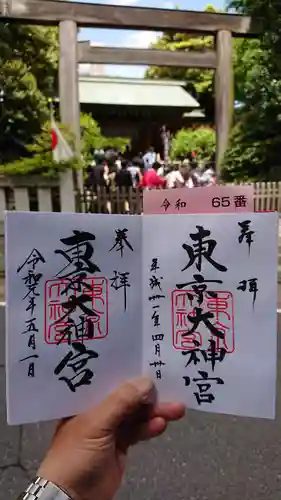 令和 65番
奉拝
東京大神宮
平成卅一年四月卅日
奉拝
東京大神宮
令和元年五月一日